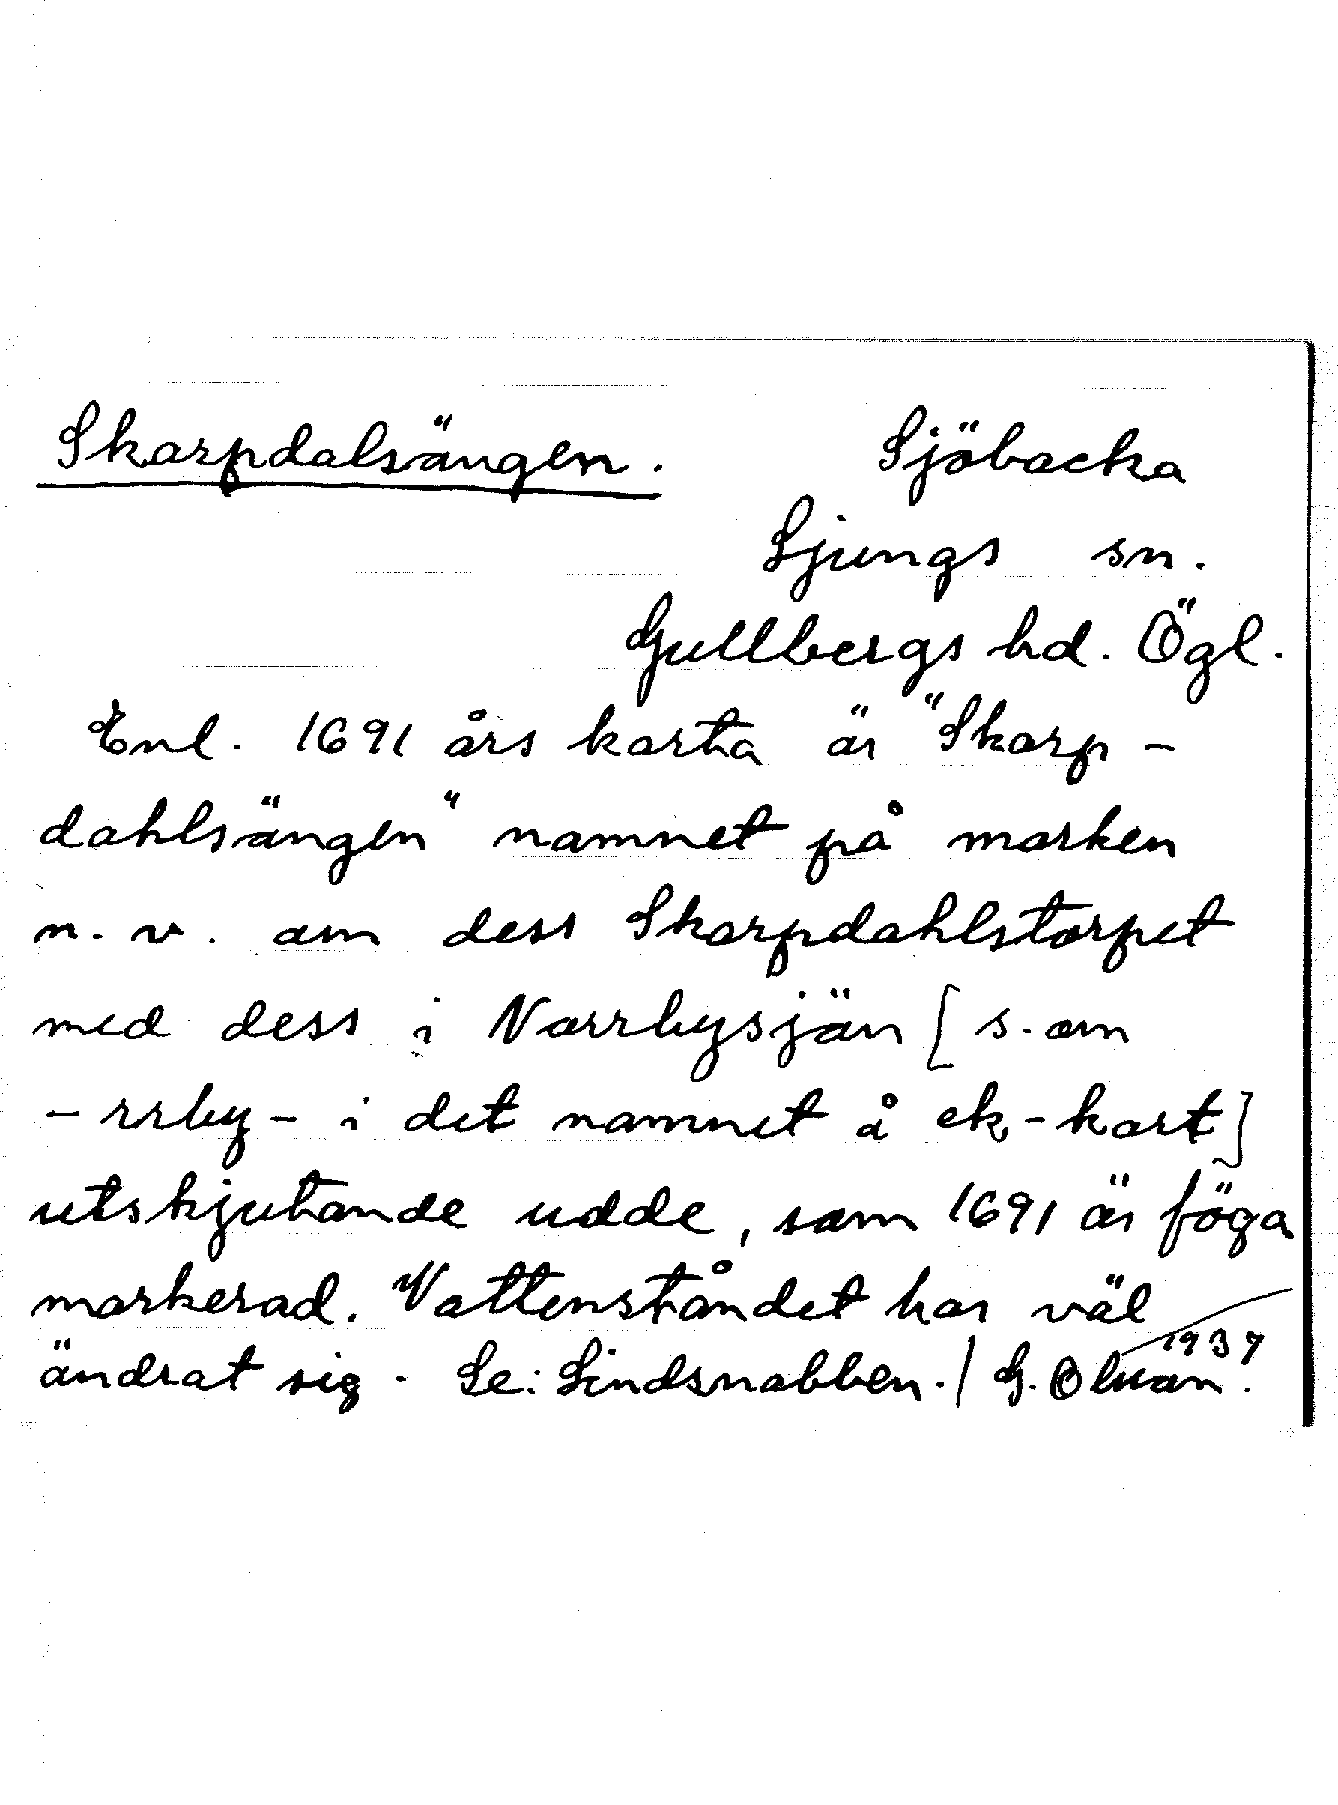 Skarpdalsängen. Sjöbacka
Ljungs sn.
Gullbergs hd. Ögl.
Enl. 1691 års karta är "Skarp-
dahlsängen" namnet på marken
n. v. om dess Skarpdahlstorpet
med dess i Norrbysjön [s. om
-rrby- i det namnet å ek-kart]
utskjutande udde, som 1691 är föga
markerad. Vattenståndet har väl
ändrat sig. Se: Lindsnabben./ G.
1937